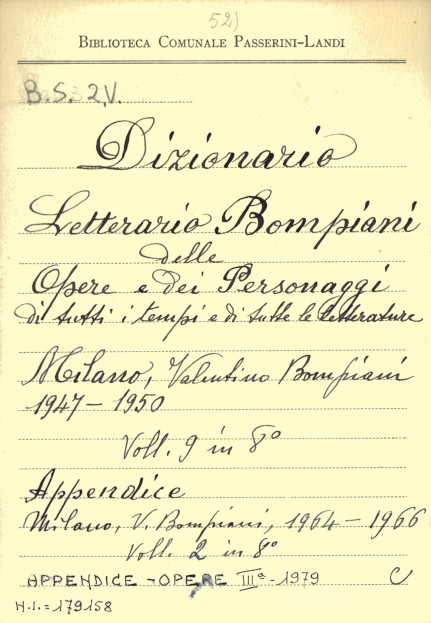 52)
BIBLIOTECA COMUNALE PASSERINI-LANDI
B.S. 2.V.
Dizionario
Letterario Bompiani
delle
Opere e dei Personaggi
di tutti i tempi e di tutte le letterature
Milano, Valentino Bompiani
1947-1950
Voll. 9 in 8°
Appendice
Milano, V. Bompiani, 1964-1966
Voll. 2 in 8°
APPENDICE - OPERE IIIª - 1979 C
N.I. = 179158